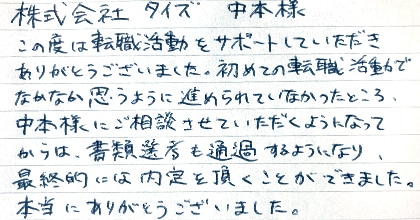 株式会社 タイズ 中本様
この度は転職活動をサポートしていただき
ありがとうございました。初めての転職活動で
なかなか思うように進められていなかったところ、
中本様にご相談させていただくようになって
からは、書類選考も通過するようになり、
最終的には内定を頂くことができました。
本当にありがとうございました。